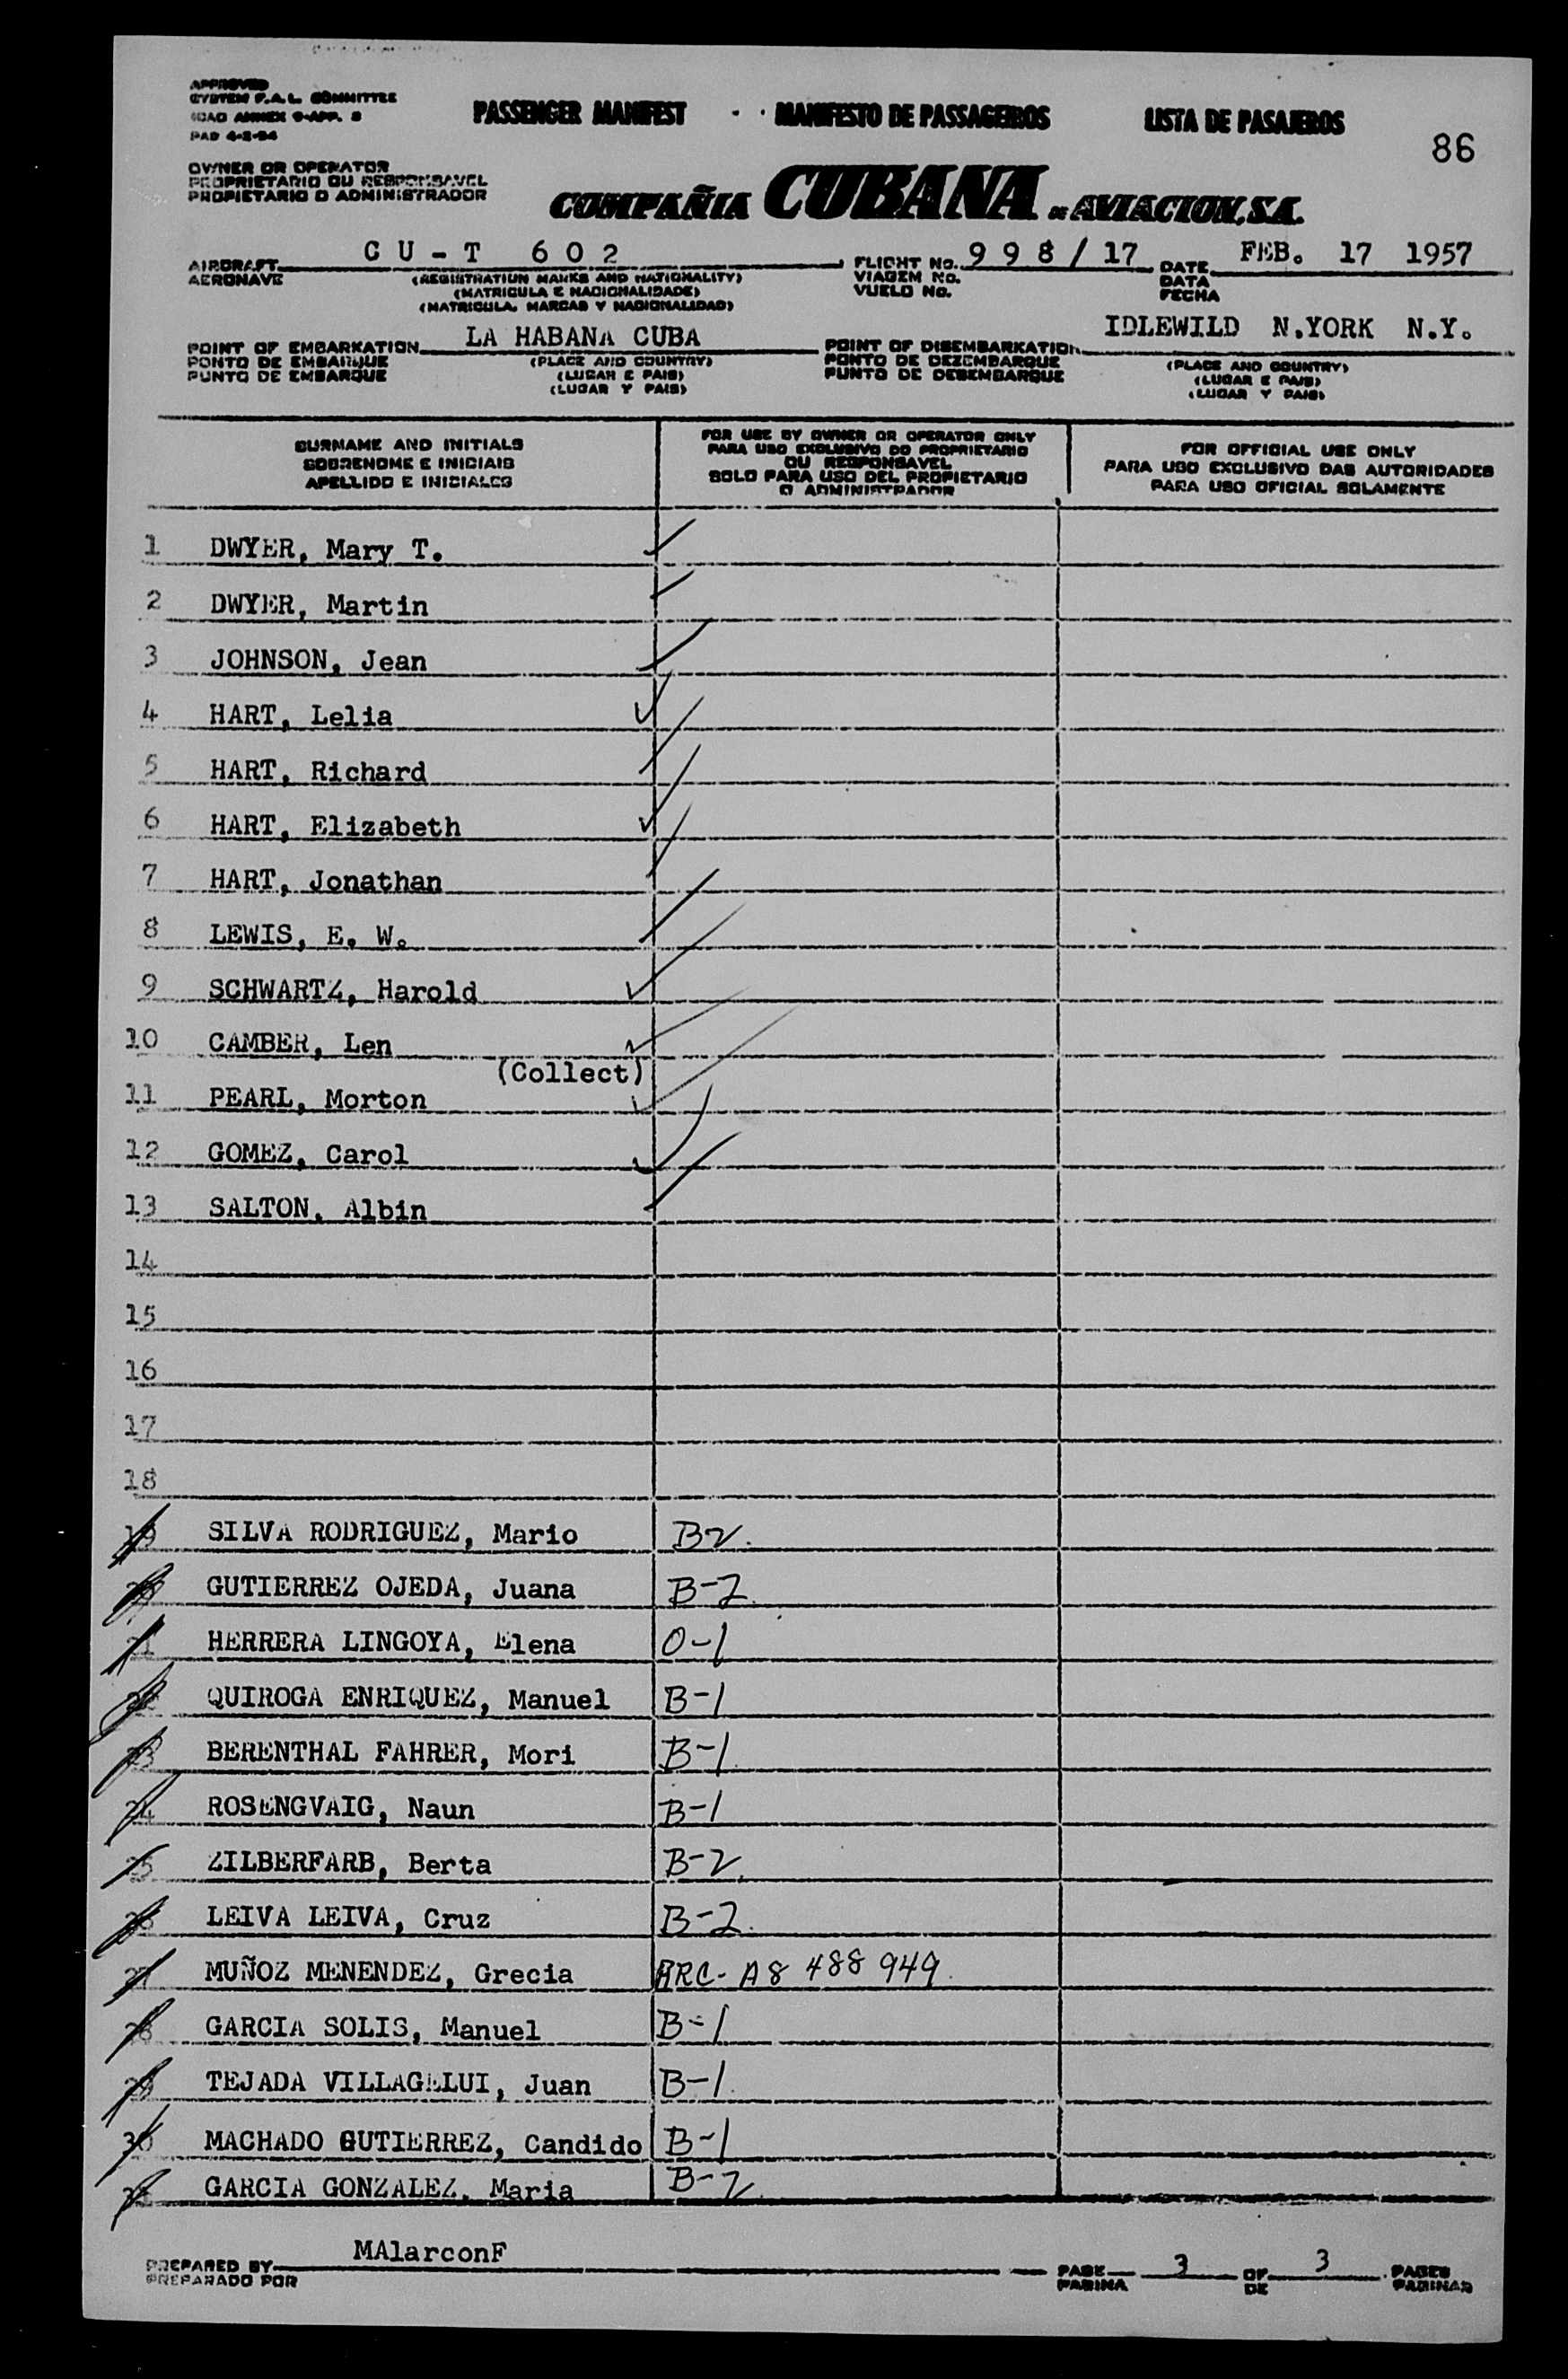 APPROVED
SYSTEM F.A.L. COMMITTEE
ICAO ANNEX 9-APP. 5
PAD 4-2-54
PASSENGER MANIFEST · · MANIFESTO DE PASSAGEIROS LISTA DE PASAJEROS
86
OWNER OR OPERATOR
PROPRIETARIO OU RESPONSAVEL
PROPIETARIO O ADMINISTRADOR
COMPAÑIA CUBANA DE AVIACION, S.A.
AIRCRAFT CU-T 602 FLIGHT No. 998/17 DATE FEB. 17 1957
AERONAVE (REGISTRATION MARKS AND NATIONALITY) VIAGEM No. DATA
(MATRICULA E NACIONALIDADE) VUELO No. FECHA
(MATRICULA, MARCAS Y NACIONALIDAD)
POINT OF EMBARKATION LA HABANA CUBA POINT OF DISEMBARKATION IDLEWILD N.YORK N.Y.
PONTO DE EMBARQUE (PLACE AND COUNTRY) PONTO DE DEZEMBARQUE (PLACE AND COUNTRY)
PUNTO DE EMBARQUE (LUGAR E PAIS) PUNTO DE DESEMBARQUE (LUGAR E PAIS)
(LUGAR Y PAIS) (LUGAR Y PAIS)
SURNAME AND INITIALS
SOBRENOME E INICIAIS
APELLIDO E INICIALES
FOR USE BY OWNER OR OPERATOR ONLY
PARA USO EXCLUSIVO DO PROPRIETARIO
OU RESPONSAVEL
SOLO PARA USO DEL PROPIETARIO
O ADMINISTRADOR
FOR OFFICIAL USE ONLY
PARA USO EXCLUSIVO DAS AUTORIDADES
PARA USO OFICIAL SOLAMENTE
1 DWYER, Mary T.
2 DWYER, Martin
3 JOHNSON, Jean
4 HART, Lelia
5 HART, Richard
6 HART, Elizabeth
7 HART, Jonathan
8 LEWIS, E. W.
9 SCHWARTZ, Harold
10 CAMBER, Len
(Collect)
11 PEARL, Morton
12 GOMEZ, Carol
13 SALTON, Albin
14
15
16
17
18
19 SILVA RODRIGUEZ, Mario B2.
20 GUTIERREZ OJEDA, Juana B-2.
21 HERRERA LINGOYA, Elena O-1
22 QUIROGA ENRIQUEZ, Manuel B-1
23 BERENTHAL FAHRER, Mori B-1
24 ROSENGVAIG, Naun B-1
25 ZILBERFARB, Berta B-2.
26 LEIVA LEIVA, Cruz B-2.
27 MUÑOZ MENENDEZ, Grecia ARC- A8 488 949
28 GARCIA SOLIS, Manuel B-1
29 TEJADA VILLAGELUI, Juan B-1.
30 MACHADO GUTIERREZ, Candido B-1
GARCIA GONZALEZ, Maria B-2.
PREPARED BY MAlarconF PAGE 3 OF 3 PAGES
PREPARADO POR PAGINA DE PAGINAS